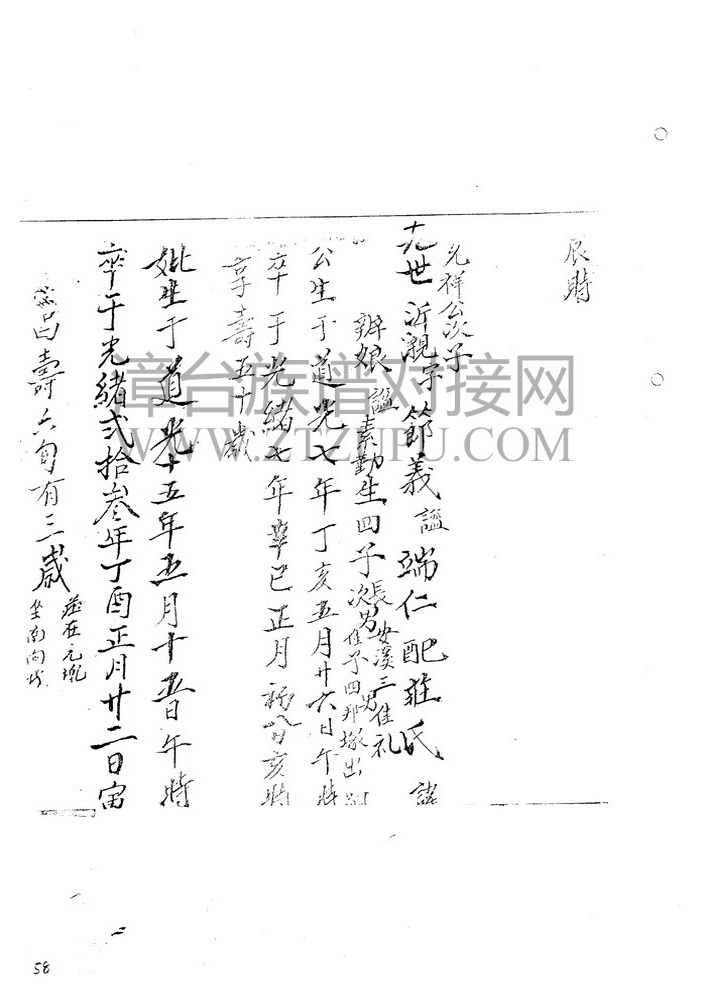 辰時
光祥公次子
十九世 沂 字節義 謚端仁 配莊氏 諱
辦娘 謚素勤 生四子 長男安溪 三男佳礼
次男佳予 四邦塚 出别
公生于道光七年丁亥五月廿六日午時
卒于光緒七年辛巳正月初八日亥時
享壽五十歲
妣生于道光十五年五月十五日午時
卒于光緒弍拾叁年丁酉正月廿二日寅
昌壽六旬有三歲
葬在元
坐南向北
漳台族谱对接网
WWW.ZTZUPU.COM
58